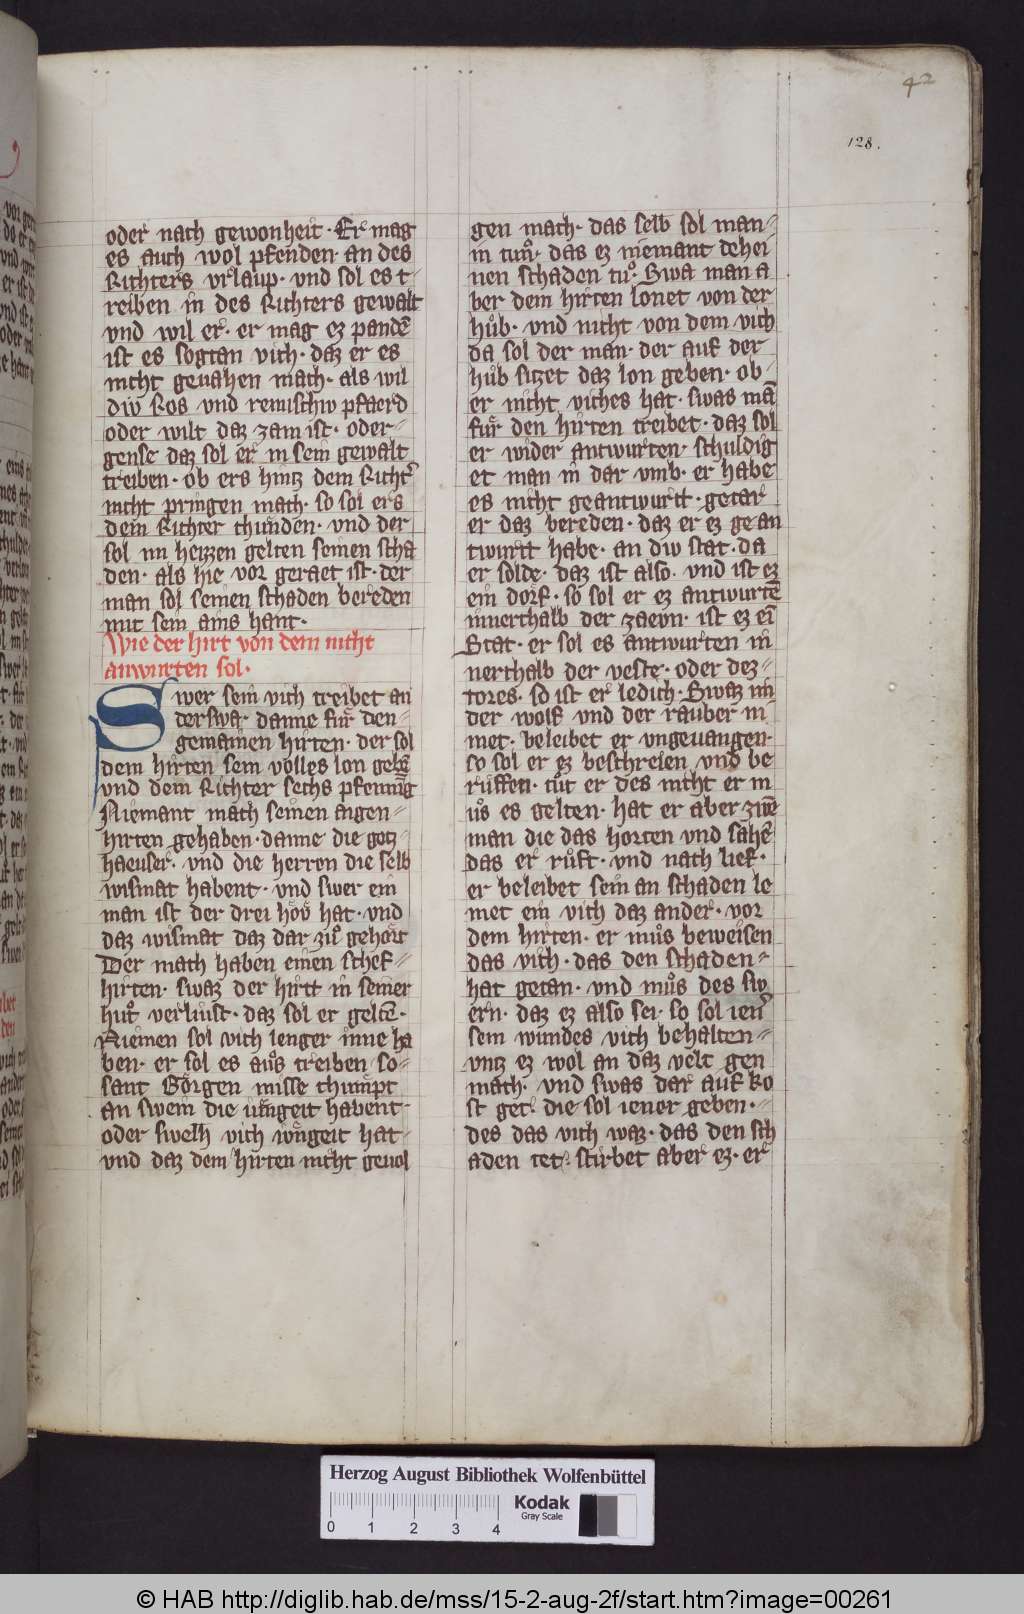 42
128.
oder nach gewonheit · Er mag
es auch wol pfenden · an des
Richters vrlaup · vnd sol es t
reiben in des Richters gewalt
vnd wil er · er mag ez pandē
ist es sogtan vich · daz er es
nicht geuahen mach · als wil
diw Ros vnd remischiv pfaerd
oder wilt daz zam ist · oder
gense daz sol er in sein gewalt
treiben · ob ers hintz dem Richt
nicht pringen mach · so sol ers
dem Richter chunden · vnd der
sol im heizzen gelten seinen scha
den · als hie vor geraet ist · der
man sol seinen schaden bereden
mit sein ains hant ·
Wie der hirt von dem nicht
anwurten sol ·
Swer sein vich treibet an
derswa · danne fur den
gemainen hirten · der sol
dem hirten sein volles lon gebn̄
vnd dem Richter sechs pfenning
Niemant mach seinen aigen
hirten gehaben · danne die gotz
haeuser · vnd die herren die selb
wismat habent · vnd swer ein
man ist der drei höv̊ hat · vnd
daz wismat daz dar zů gehört
Der mach haben einen schef
hirten · swaz der hirtt in seiner
hůt verliust · daz sol er geltē ·
Niemen sol vich lenger inne ha
ben · er sol es aůs treiben so
sant Görgen misse chumpt
an swem die ungeit habent
oder swelh vich ungeit hat
vnd daz dem hirten nicht geuol
gen mach · das selb sol man
in tun · das ez niemant dehei
nen schaden tů · Swa man a
ber dem hirten lonet von der
hůb · vnd nicht von dem vich
da sol der man · der auf der
hůb sitzet daz lon geben · ob
er nicht viches hat · swas mā
fůr den hirten treibet · daz sol
er wider antwurten · schuldig
et man in dar vmb · er habe
es nicht geantwurtt · getar
er daz bereden · daz er ez gean
twurtt habe · an diw stat · da
er solde · daz ist also · vnd ist ez
ein dorf · so sol er ez antwurtē
innerthalb der zaevn · ist ez eī
Stat · er sol es antwurten in
nerthalb der veste · oder dez
tores · so ist er ledich · Swaz im
der wolf vnd der rauber ni
met · beleibet er vngeuangen
so sol er ez beschreien vnd be
růffen · tůt er des nicht er m
ůs es gelten · hat er aber zwē
man die das horten vnd sahē
das er růft · vnd nach lief ·
er beleibet sein an schaden le
met ein vich daz ander · vor
dem hirten · er můs beweisen
das vich · das den schaden
hat getan · vnd můs des sw
ern · daz ez also sei · so sol iener
sein wundes vich behalten
vntz ez wol an daz velt gen
mach · vnd swas dar auf ko
st get · die sol iener geben ·
des das vich waz · das den sch
aden tet · stirbet aber ez · er
Herzog August Bibliothek Wolfenbüttel
0 1 2 3 4
Kodak
Gray Scale
© HAB http://diglib.hab.de/mss/15-2-aug-2f/start.htm?image=00261